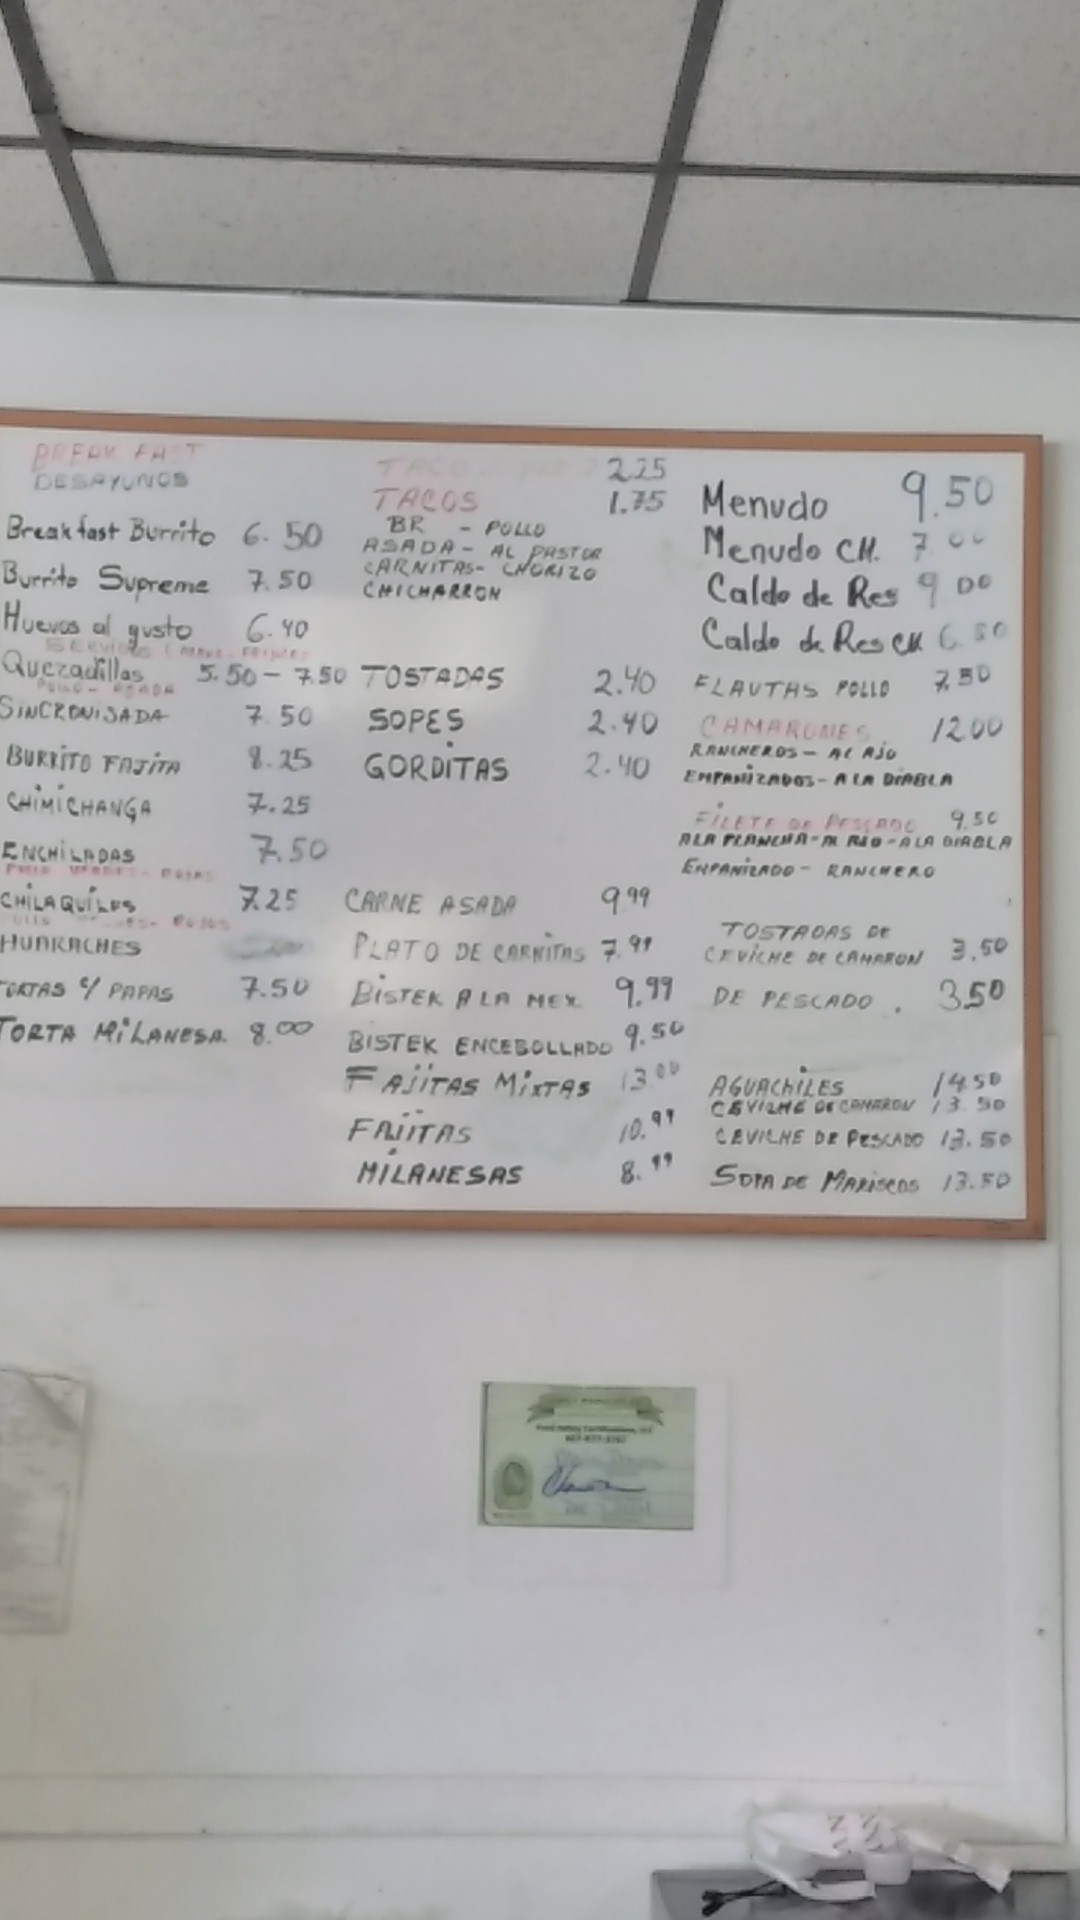 BREAK FAST
DESAYUNOS
Breakfast Burrito 6.50
Burrito Supreme 7.50
Huevos al gusto 6.40
Quezadillas 5.50 - 7.50
POLLO - ASADA
SINCRONISADA 7.50
BURRITO FAJITA 8.25
CHIMICHANGA 7.25
ENCHILADAS 7.50
POLLO VERDES - ROJAS
CHILAQUILES 7.25
ROJOS
HUARACHES
TORTAS C/ PAPAS 7.50
TORTA MILANESA 8.00
TACO 2.25
TACOS 1.75
BR - POLLO
ASADA - AL PASTOR
CARNITAS - CHORIZO
CHICHARRON
TOSTADAS 2.40
SOPES 2.40
GORDITAS 2.40
CARNE ASADA 9.99
PLATO DE CARNITAS 7.99
BISTEK A LA MEX 9.99
BISTEK ENCEBOLLADO 9.50
FAJITAS MIXTAS 13.00
FAJITAS 10.99
MILANESAS 8.99
Menudo 9.50
Menudo CH. 7.00
Caldo de Res 9.00
Caldo de Res CH 6.50
FLAUTAS POLLO 7.50
CAMARONES 12.00
RANCHEROS - AL AJO
EMPANIZADOS - A LA DIABLA
FILETE DE PESCADO 9.50
A LA PLANCHA - AL AJO - A LA DIABLA
EMPANIZADO - RANCHERO
TOSTADAS DE
CEVICHE DE CAMARON 3.50
DE PESCADO . 3.50
AGUACHILES 14.50
CEVICHE DE CAMARON 13.50
CEVICHE DE PESCADO 13.50
SOPA DE MARISCOS 13.50